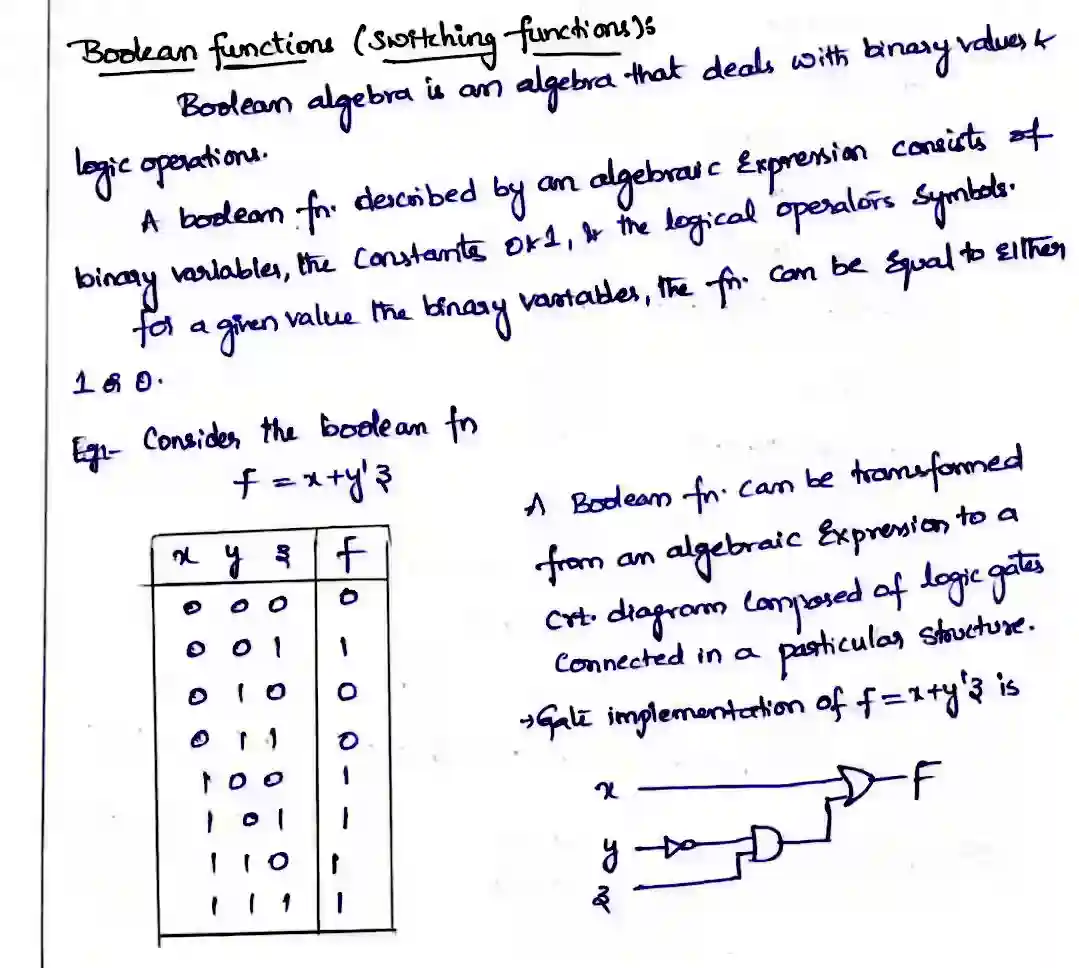 Boolean functions (Switching functions):
Boolean algebra is an algebra that deals with binary values &
logic operations.
A boolean fn. described by an algebraic Expression consists of
binary variables, the Constants 0 & 1, & the logical operators symbols.
for a given value the binary variables, the fn. can be Equal to Either
1 or 0.
Eg:- Consider the boolean fn
f = x+y'z
x y z f
0 0 0 0
0 0 1 1
0 1 0 0
0 1 1 0
1 0 0 1
1 0 1 1
1 1 0 1
1 1 1 1
A Boolean fn. can be transformed
from an algebraic Expression to a
crt. diagram Composed of logic gates
Connected in a particular structure.
→ Gate implementation of f = x+y'z is
x
F
y
z